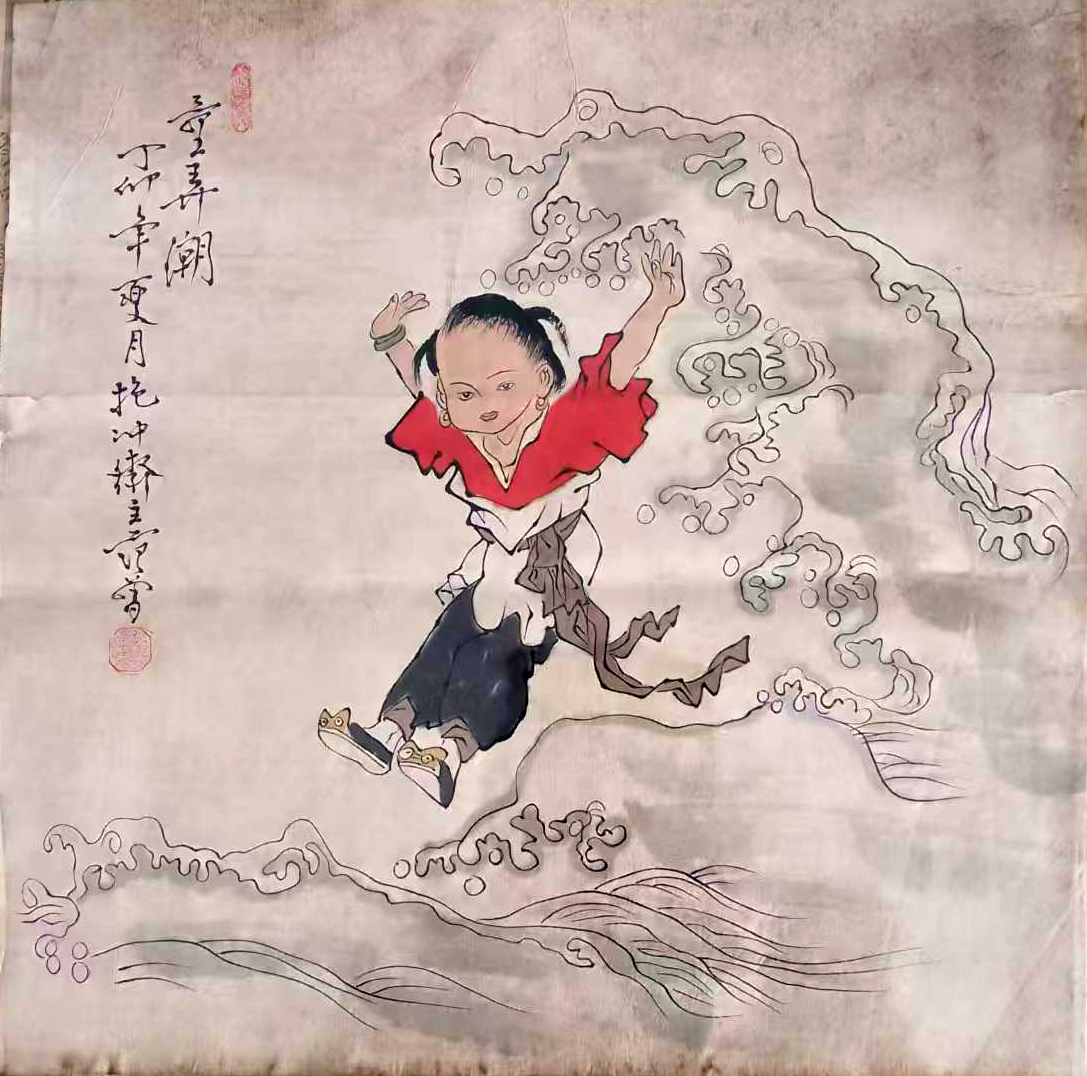 童弄潮
丁卯年夏月抱冲斋主范曾